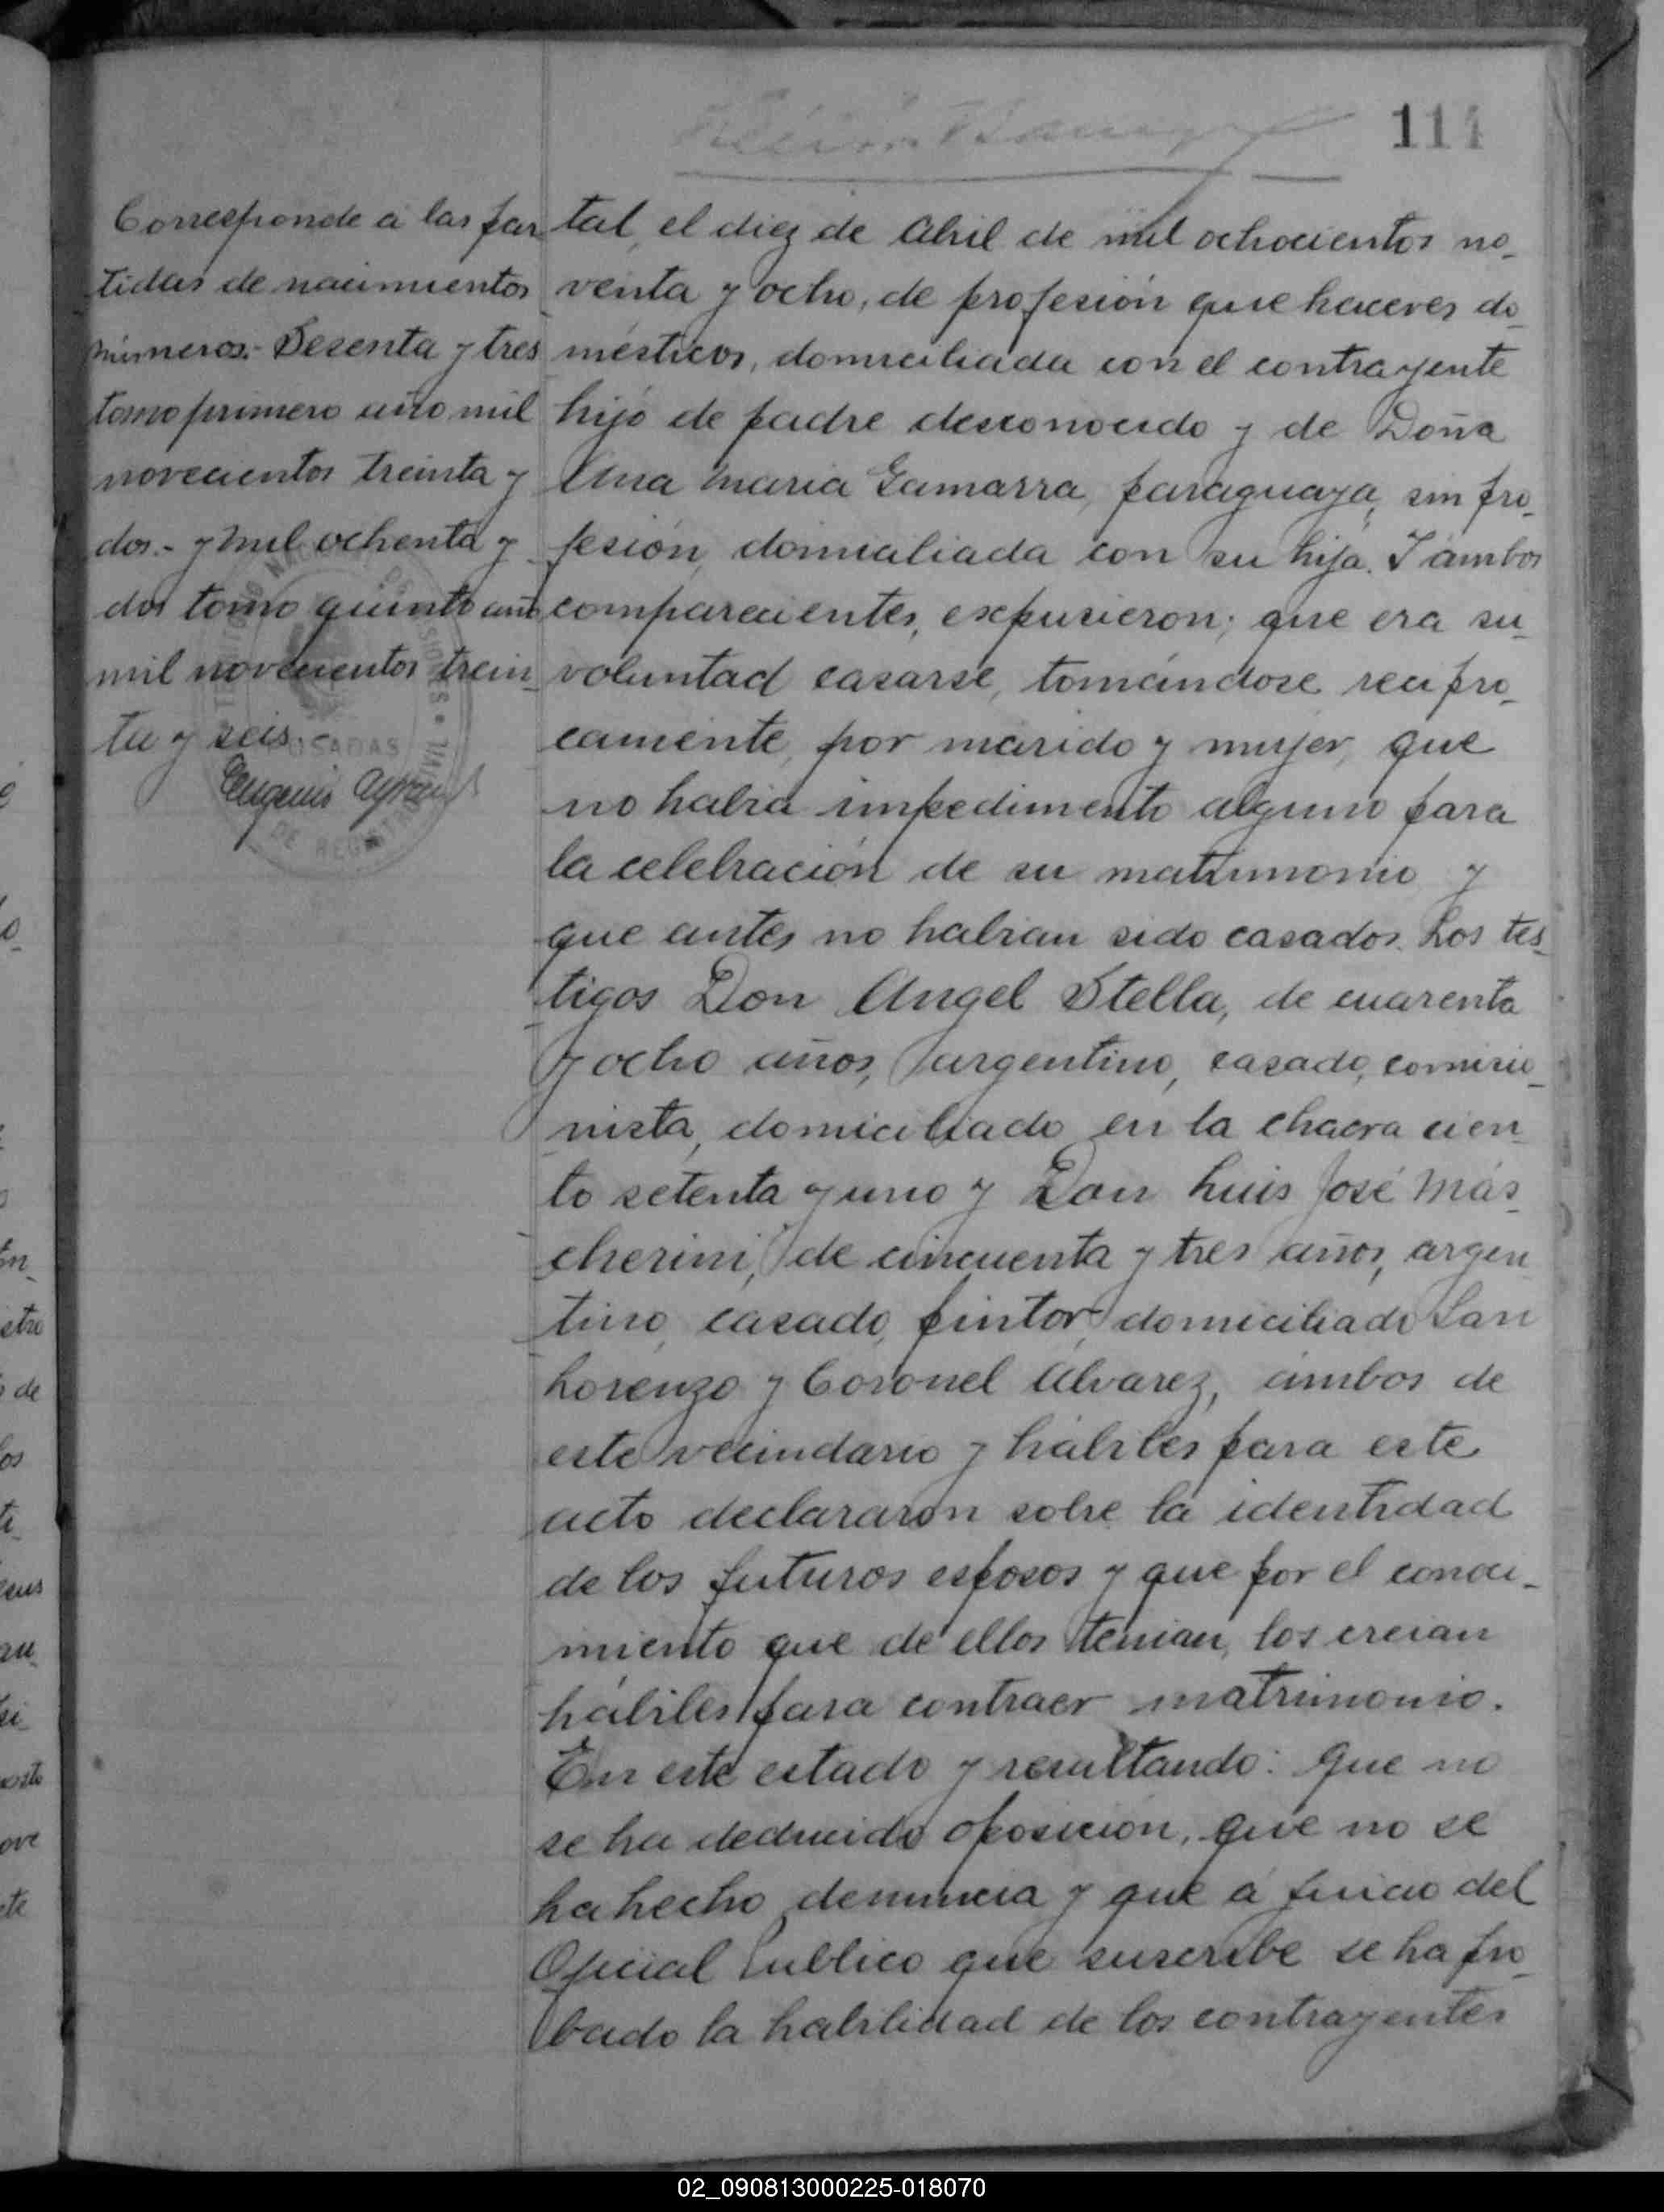 111
Corresponde á las par
tidas de nacimientos
números:- Sesenta y tres
tomo primero año mil
novecientos treinta y
dos.- y mil ochenta y
dos tomo quinto año
mil novecientos trein_
ta y seis.-
Eugenio
POSADAS
DE REGISTRO
tal, el diez de Abril de mil ochocientos no_
venta y ocho, de profesión que haceres do_
mésticos, domiciliada con el contrayente
hijo de padre desconocido y de Doña
Ana Maria Gamarra, paraguaya, sin pro_
fesión, domiciliada con su hija. Y ambos
comparecientes, expusieron; que era su_
voluntad casarse, tomándose recipro_
camente, por marido y mujer, que
no habia impedimento alguno para
la celebración de su matrimonio y
que antes no habian sido casados. Los tes_
tigos Don Angel Stella, de cuarenta
y ocho años, argentino, casado, comisio_
nista, domiciliado en la chacra cien_
to setenta y uno y Don Luis José Más_
cherini, de cincuenta y tres años, argen_
tino, casado, pintor, domiciliado San
Lorenzo y Coronel Alvarez, ambos de
este vecindario y hábiles para este
acto declararon sobre la identidad
de los futuros esposos y que por el conoci_
miento que de ellos tenian, los creian
hábiles para contraer matrimonio.
En este estado y resultando: Que no
se ha deducido oposición, que no se
ha hecho denuncia y que á juicio del
Oficial Publico que suscribe se ha pro_
bado la habilidad de los contrayentes
02_090813000225-018070